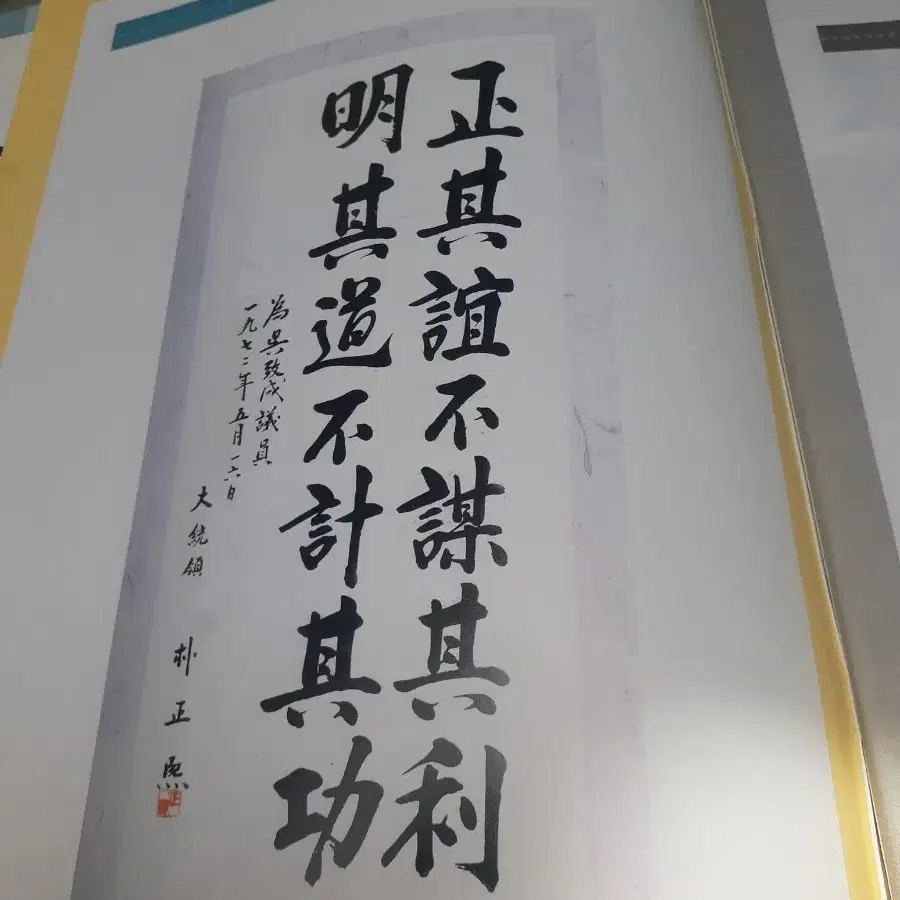 正其誼不謀其利
明其道不計其功
為吳致成議員
一九七二年 五月 一六日
大統領 朴正熙